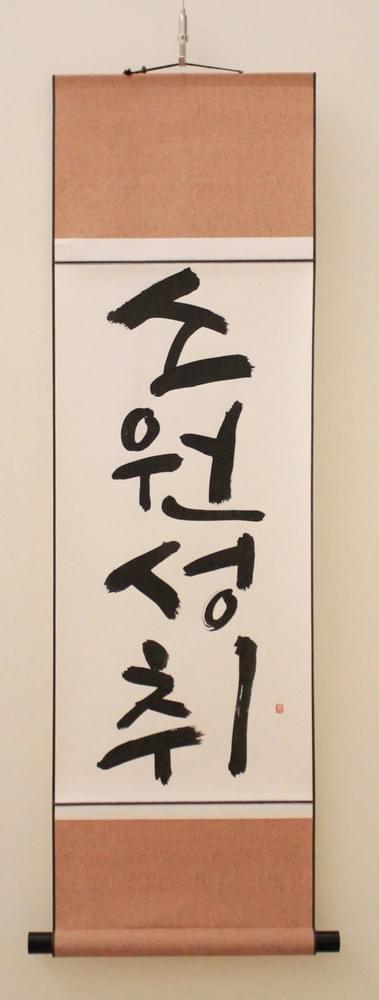 소
원
성
취